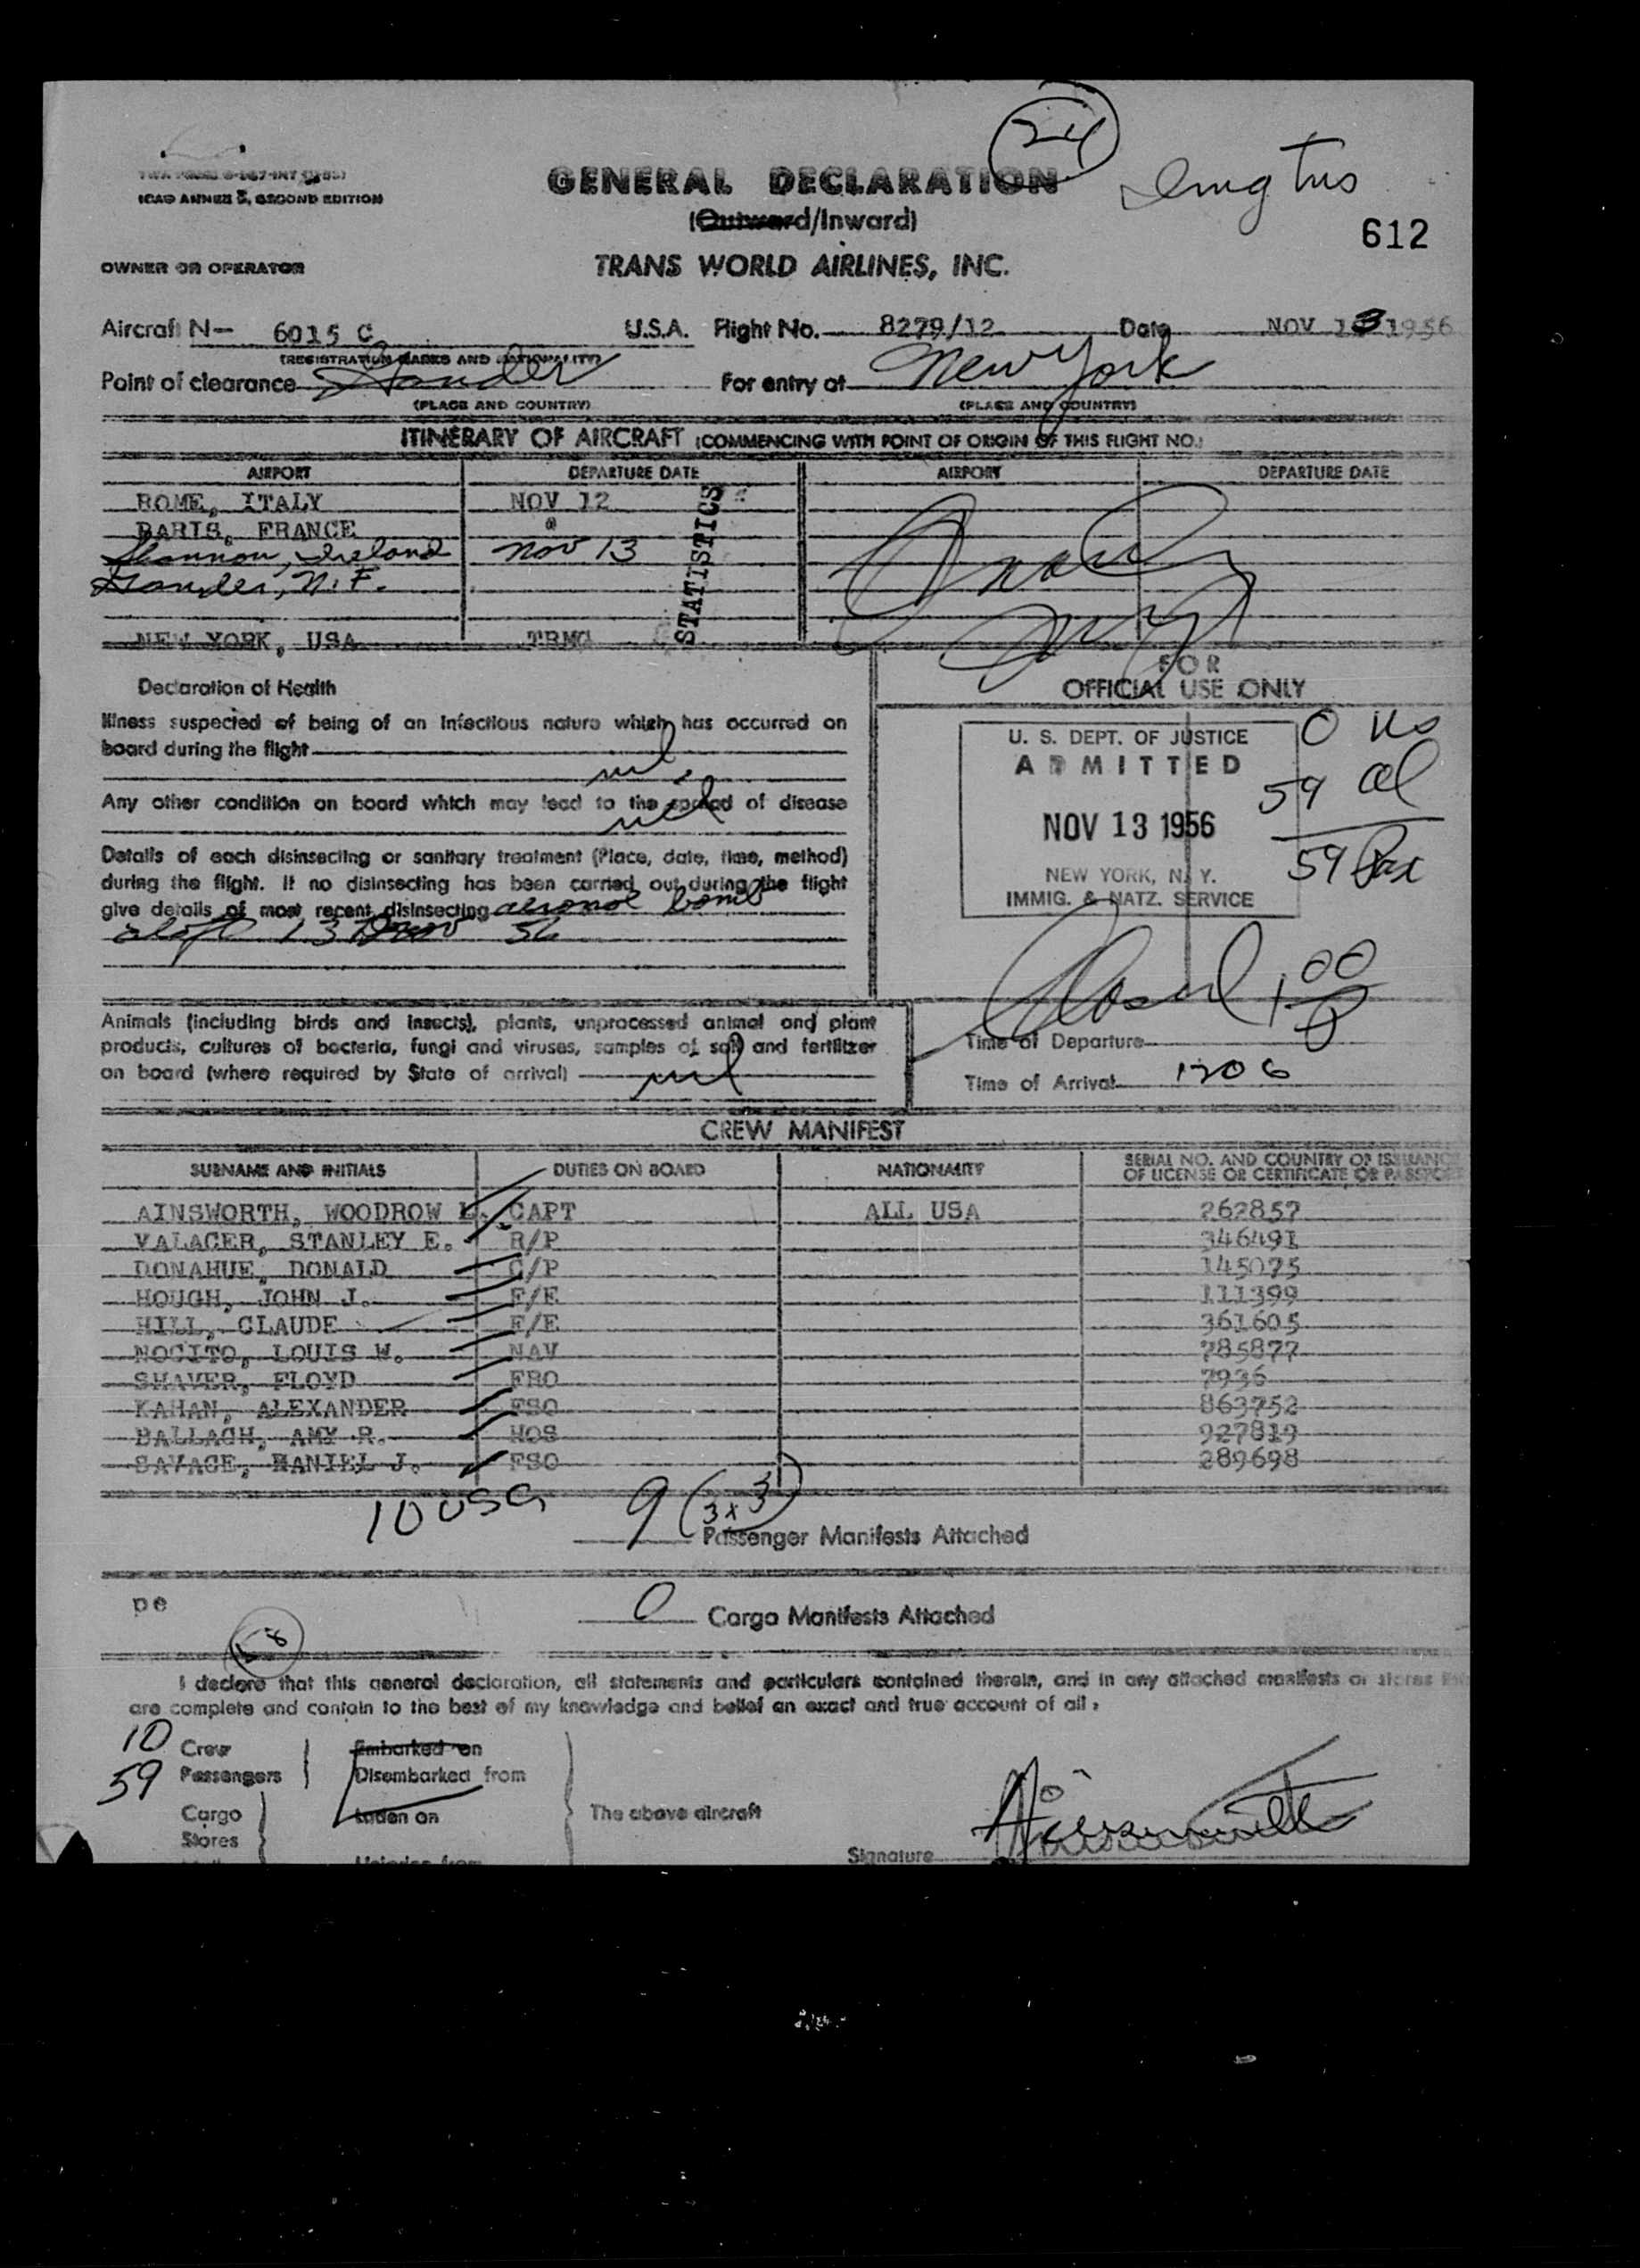 24
ICAO ANNEX 9, SECOND EDITION
GENERAL DECLARATION
(Outward/Inward)
612
OWNER OR OPERATOR
TRANS WORLD AIRLINES, INC.
Aircraft N- 6015 C U.S.A. Flight No. 8279/12 Date NOV 13 1956
(REGISTRATION MARKS AND NATIONALITY)
Point of clearance Gander For entry at New York
(PLACE AND COUNTRY) (PLACE AND COUNTRY)
ITINERARY OF AIRCRAFT (COMMENCING WITH POINT OF ORIGIN OF THIS FLIGHT NO.)
AIRPORT DEPARTURE DATE AIRPORT DEPARTURE DATE
ROME, ITALY NOV 12
PARIS, FRANCE "
Shannon, Ireland Nov 13
Gander, N.F.
NEW YORK, USA TRMG
STATISTICS
Declaration of Health
FOR
OFFICIAL USE ONLY
Illness suspected of being of an infectious nature which has occurred on
board during the flight
nil
Any other condition on board which may lead to the spread of disease
nil
Details of each disinsecting or sanitary treatment (Place, date, time, method)
during the flight. If no disinsecting has been carried out during the flight
give details of most recent disinsecting aerosol bomb
aloft 13 Nov 56
U. S. DEPT. OF JUSTICE
ADMITTED
NOV 13 1956
NEW YORK, N. Y.
IMMIG. & NATZ. SERVICE
0 us
59 al
59 Pax
Animals (including birds and insects), plants, unprocessed animal and plant
products, cultures of bacteria, fungi and viruses, samples of soil and fertilizer
on board (where required by State of arrival) nil
Time of Departure
Time of Arrival 1206
CREW MANIFEST
SURNAME AND INITIALS DUTIES ON BOARD NATIONALITY SERIAL NO. AND COUNTRY OF ISSUANCE
OF LICENSE OR CERTIFICATE OR PASSPORT
AINSWORTH, WOODROW L. CAPT ALL USA 262857
VALAGER, STANLEY E. R/P 346491
DONAHUE, DONALD C/P 145075
HOUGH, JOHN J. F/E 111399
HILL, CLAUDE F/E 361605
NOCITO, LOUIS W. NAV 785877
SHAVER, FLOYD FRO 7936
KAHAN, ALEXANDER FSO 863752
BALLAGH, AMY R. HOS 927819
SAVAGE, DANIEL J. FSO 289698
10 USA
9 (3x3) Passenger Manifests Attached
pe
0 Cargo Manifests Attached
I declare that this general declaration, all statements and particulars contained therein, and in any attached manifests or stores
are complete and contain to the best of my knowledge and belief an exact and true account of all:
10 Crew Embarked on
59 Passengers Disembarked from
Cargo Laden on The above aircraft
Stores
Signature